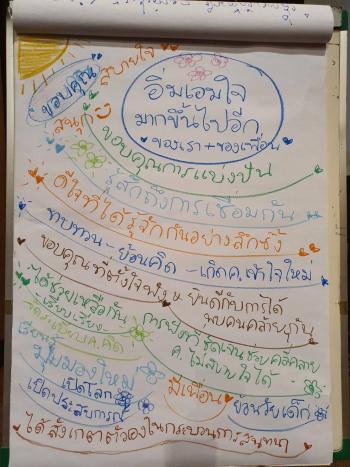 ขอบคุณ
สบายใจ
สนุก
อิ่มเอมใจ
มากขึ้นไปอีก
ของเรา + ของเพื่อน
ขอบคุณการแบ่งปัน
รู้สึกถึงการเชื่อมกัน
ดีใจที่ได้รู้จักกันอย่างลึกซึ้ง
ทบทวน - ย้อนคิด - เกิดค.เข้าใจใหม่
ขอบคุณที่ตั้งใจฟัง
ยินดีกับการได้
พบคนคล้ายๆกัน
ได้ช่วยเหลือกัน
เรียบเรียง
ชัดเจนช่วยคลี่คลาย
ค.ไม่สบายใจได้
มุมมองใหม่
เปิดโลก
เปิดประสบการณ์
มีเพื่อน
ย้อนวัยเด็ก
ได้สังเกตตัวเองในกระบวนการสนทนา